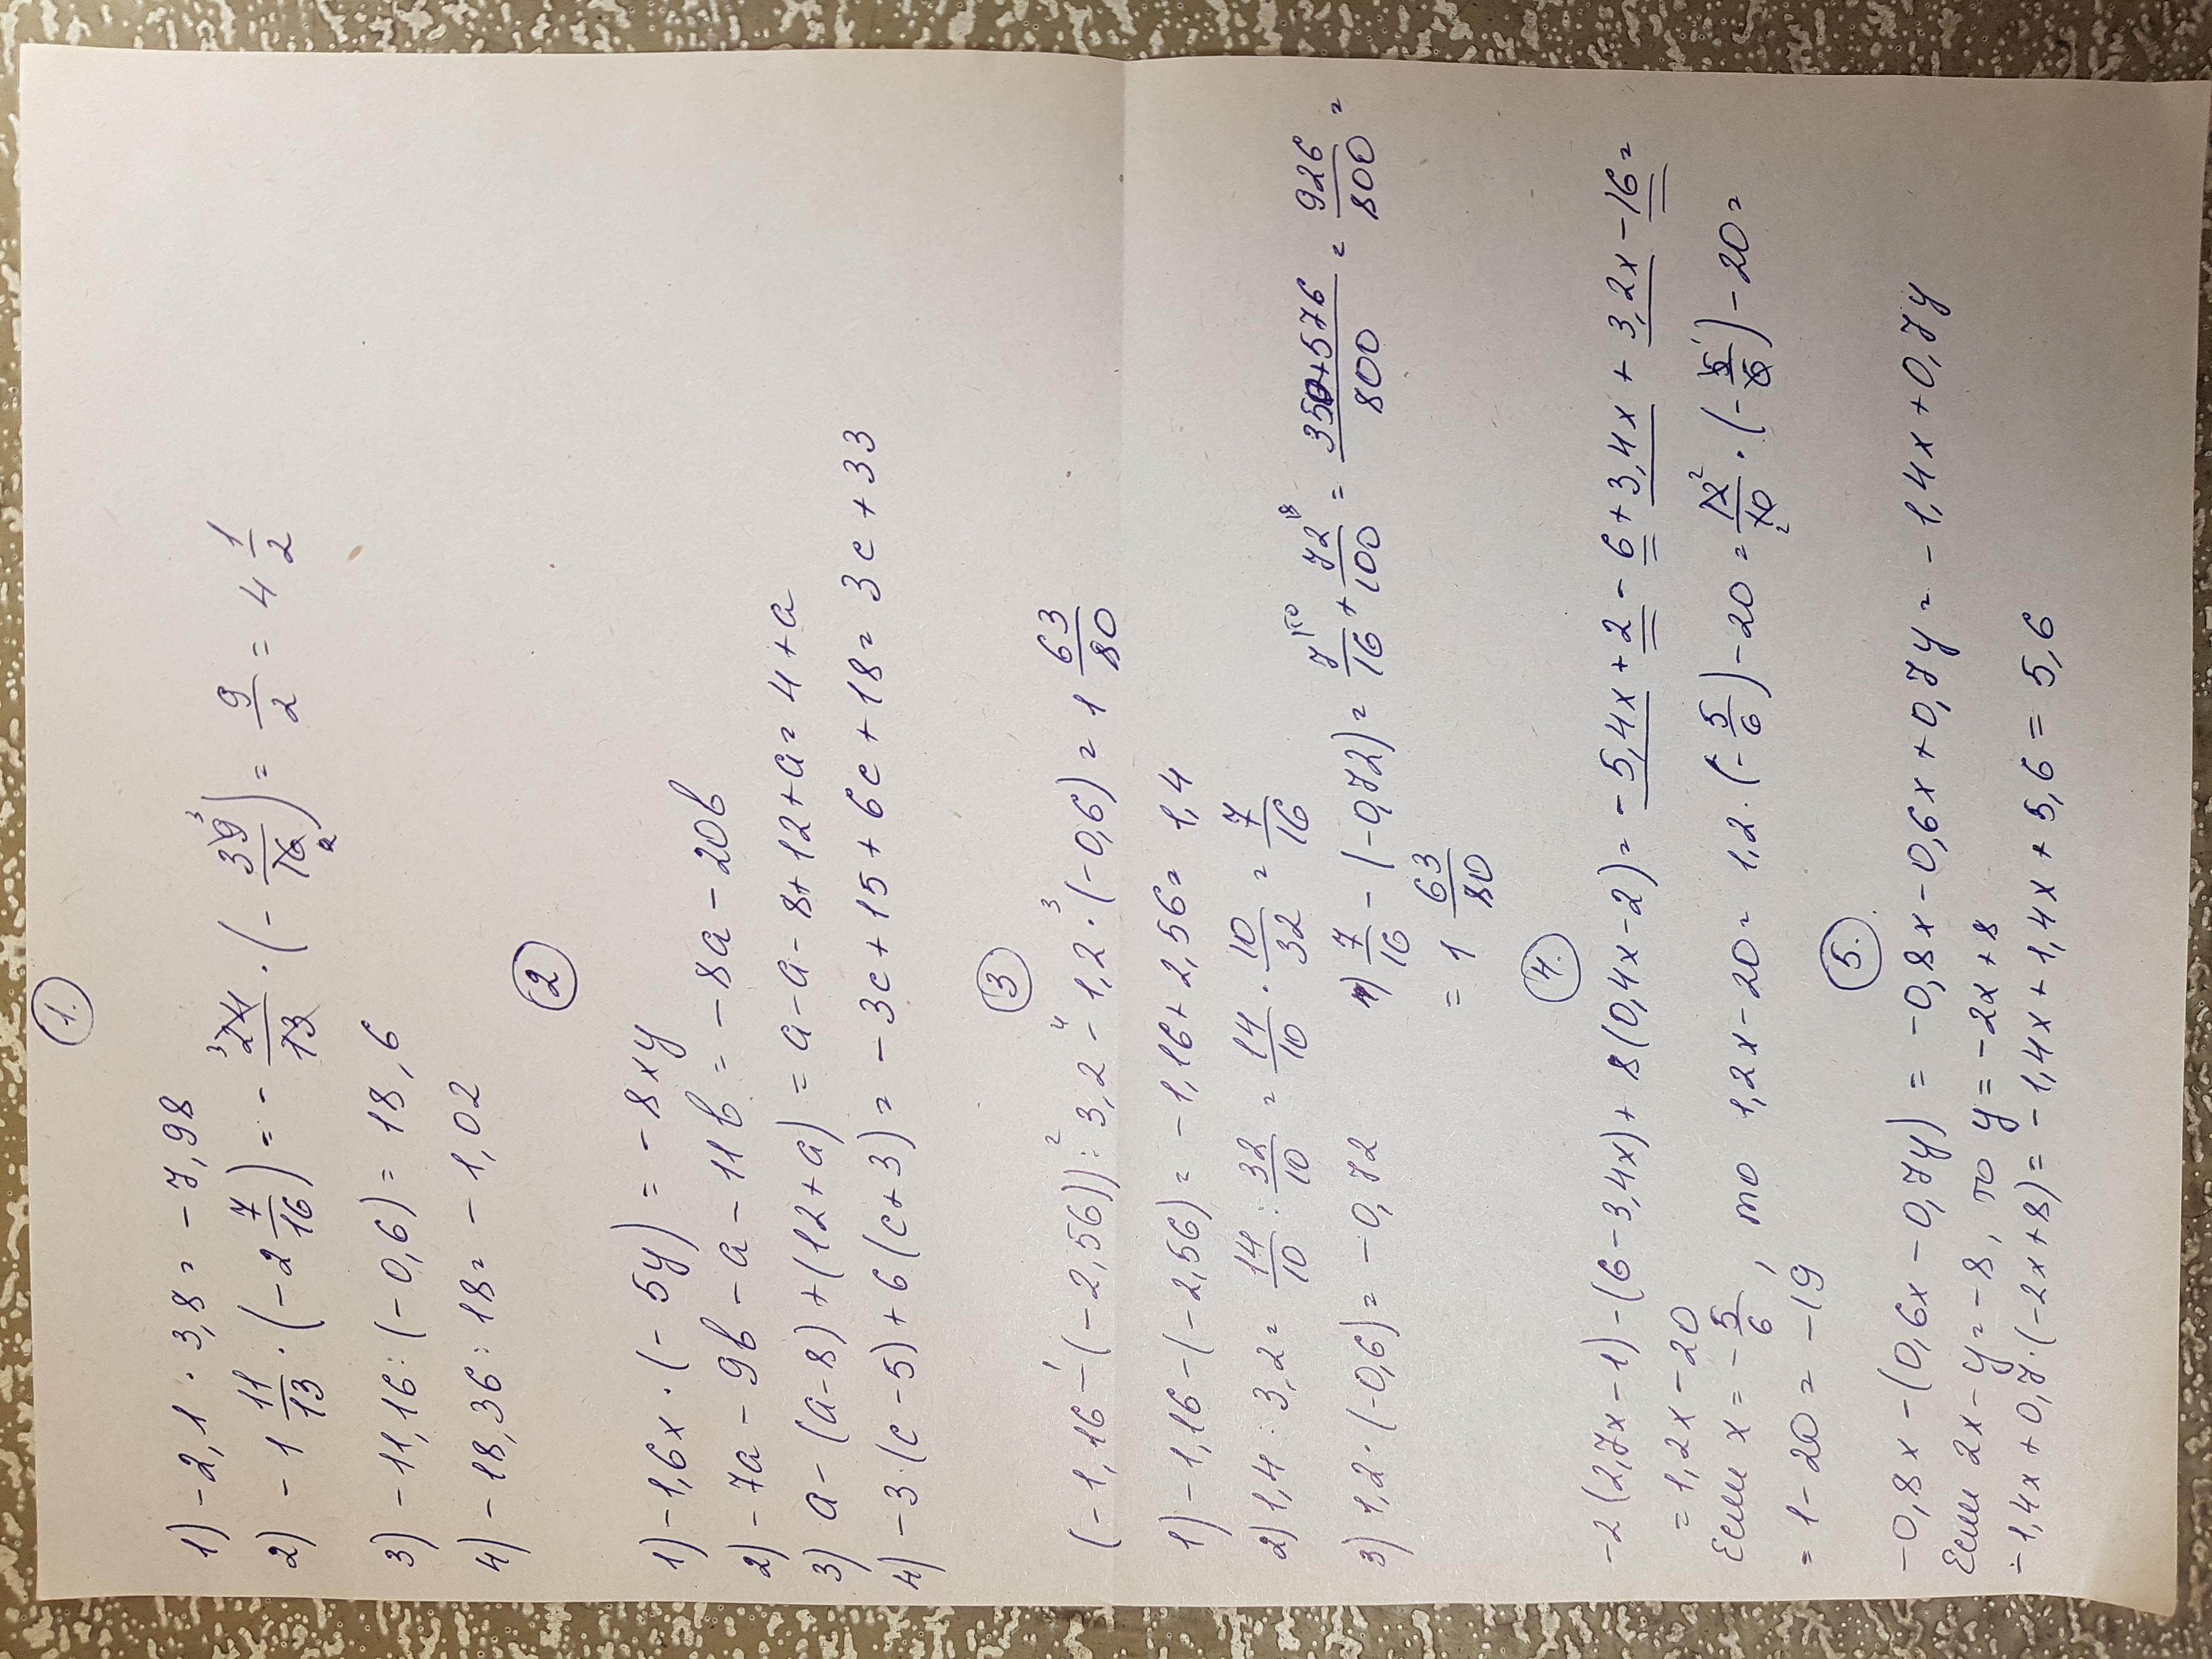 1.
1) -2,1 · 3,8 = -7,98
2) -1 11/13 · (-2 7/16) = - 24/13 · (- 39/16) = 9/2 = 4 1/2
3) -11,16 : (-0,6) = 18,6
4) -18,36 : 18 = -1,02
2
1) -1,6x · (-5y) = -8xy
2) -7a - 9b - a - 11b = -8a - 20b
3) a - (a-8) + (12+a) = a - a - 8 + 12 + a = 4 + a
4) -3·(c-5) + 6(c+3) = -3c + 15 + 6c + 18 = 3c + 33
3
(-1,16 - (-2,56)) : 3,2 - 1,2 · (-0,6) = 1 63/80
1) -1,16 - (-2,56) = -1,16 + 2,56 = 1,4
2) 1,4 : 3,2 = 14/10 : 32/10 = 14/10 · 10/32 = 7/16
3) 1,2 · (-0,6) = -0,72
4) 7/16 - (-0,72) = 7/16 + 72/100 = 350+576/800 = 926/800 =
= 1 63/80
4.
-2(2,7x-1) - (6-3,4x) + 8(0,4x-2) = -5,4x + 2 - 6 + 3,4x + 3,2x - 16 =
= 1,2x - 20
Если x = - 5/6, то 1,2x - 20 = 1,2 · (- 5/6) - 20 = 12/10 · (- 5/6) - 20 =
= 1 - 20 = -19
5.
-0,8x - (0,6x - 0,7y) = -0,8x - 0,6x + 0,7y = -1,4x + 0,7y
Если 2x - y = -8, то y = -2x + 8
-1,4x + 0,7·(-2x+8) = -1,4x + 1,4x + 5,6 = 5,6